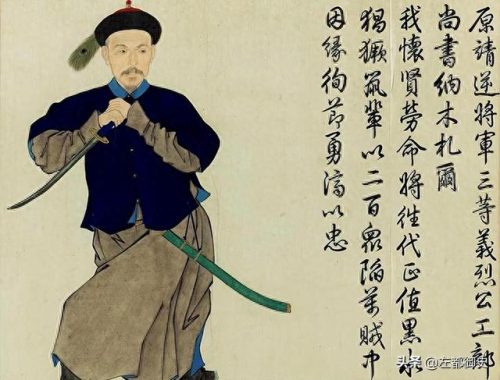 原靖逆將軍三等義烈公工部
尚書納木札爾
我懷賢勞命將徃代正值黑水
猖獗孤輩以二百衆陷萬賊中
因緣徇節勇濟以忠
头条 @左都御史